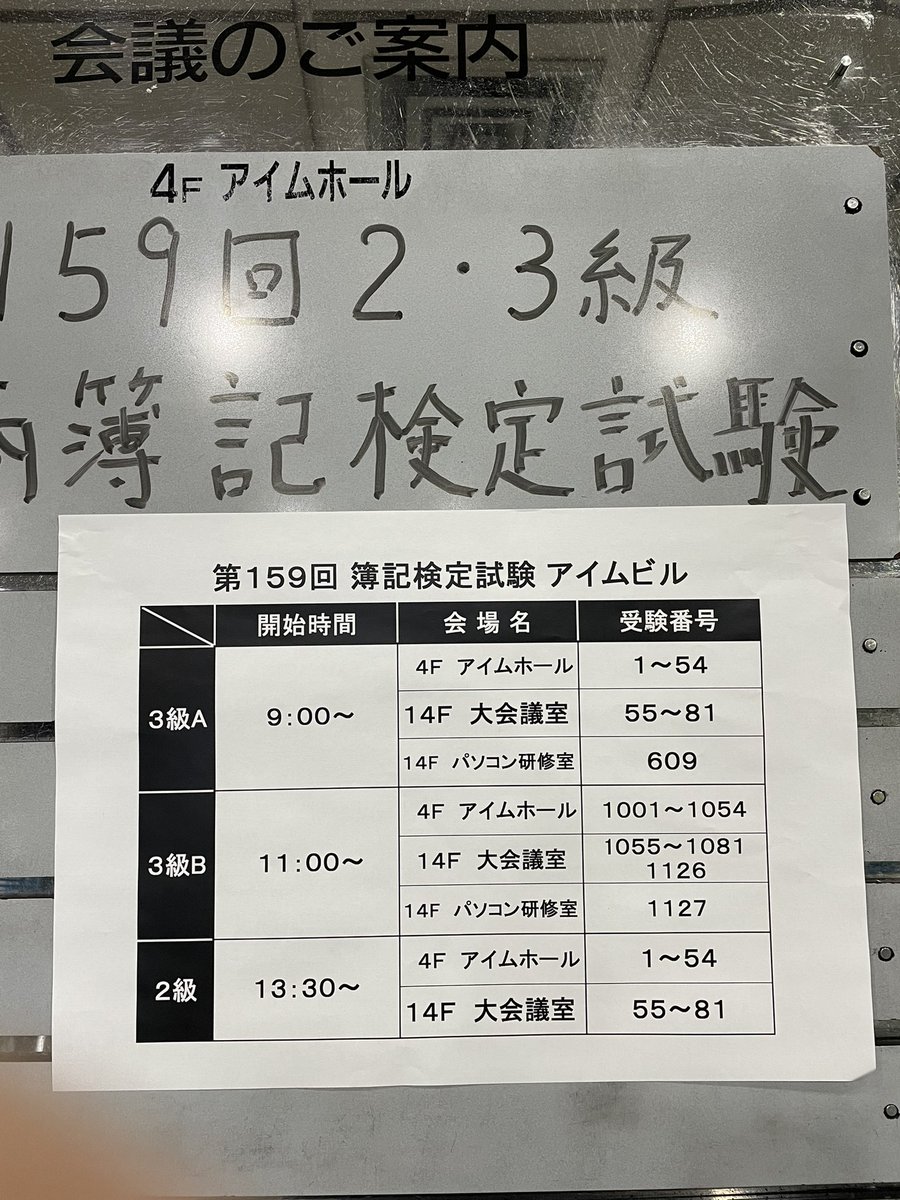 会議のご案内
4F アイムホール
159回 2・3級
簿記検定試験
第159回 簿記検定試験 アイムビル
開始時間 会場名 受験番号
3級A 9:00～ 4F アイムホール 1～54
14F 大会議室 55～81
14F パソコン研修室 609
3級B 11:00～ 4F アイムホール 1001～1054
14F 大会議室 1055～1081
1126
14F パソコン研修室 1127
2級 13:30～ 4F アイムホール 1～54
14F 大会議室 55～81